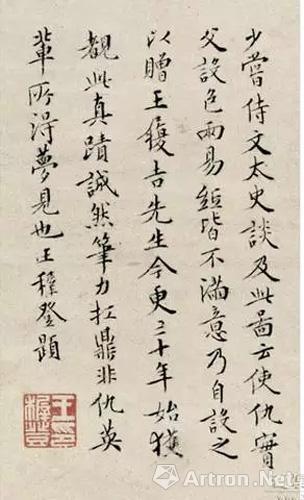 少嘗侍文太史談及此圖云使仇實
父設色兩易絹皆不滿意乃自設之
以贈王履吉先生今更三十年始獲
觀此真蹟誠然筆力扛鼎非仇英
輩所得夢見也王穉登題
王穉登印
雅昌艺术网
Artron.Net